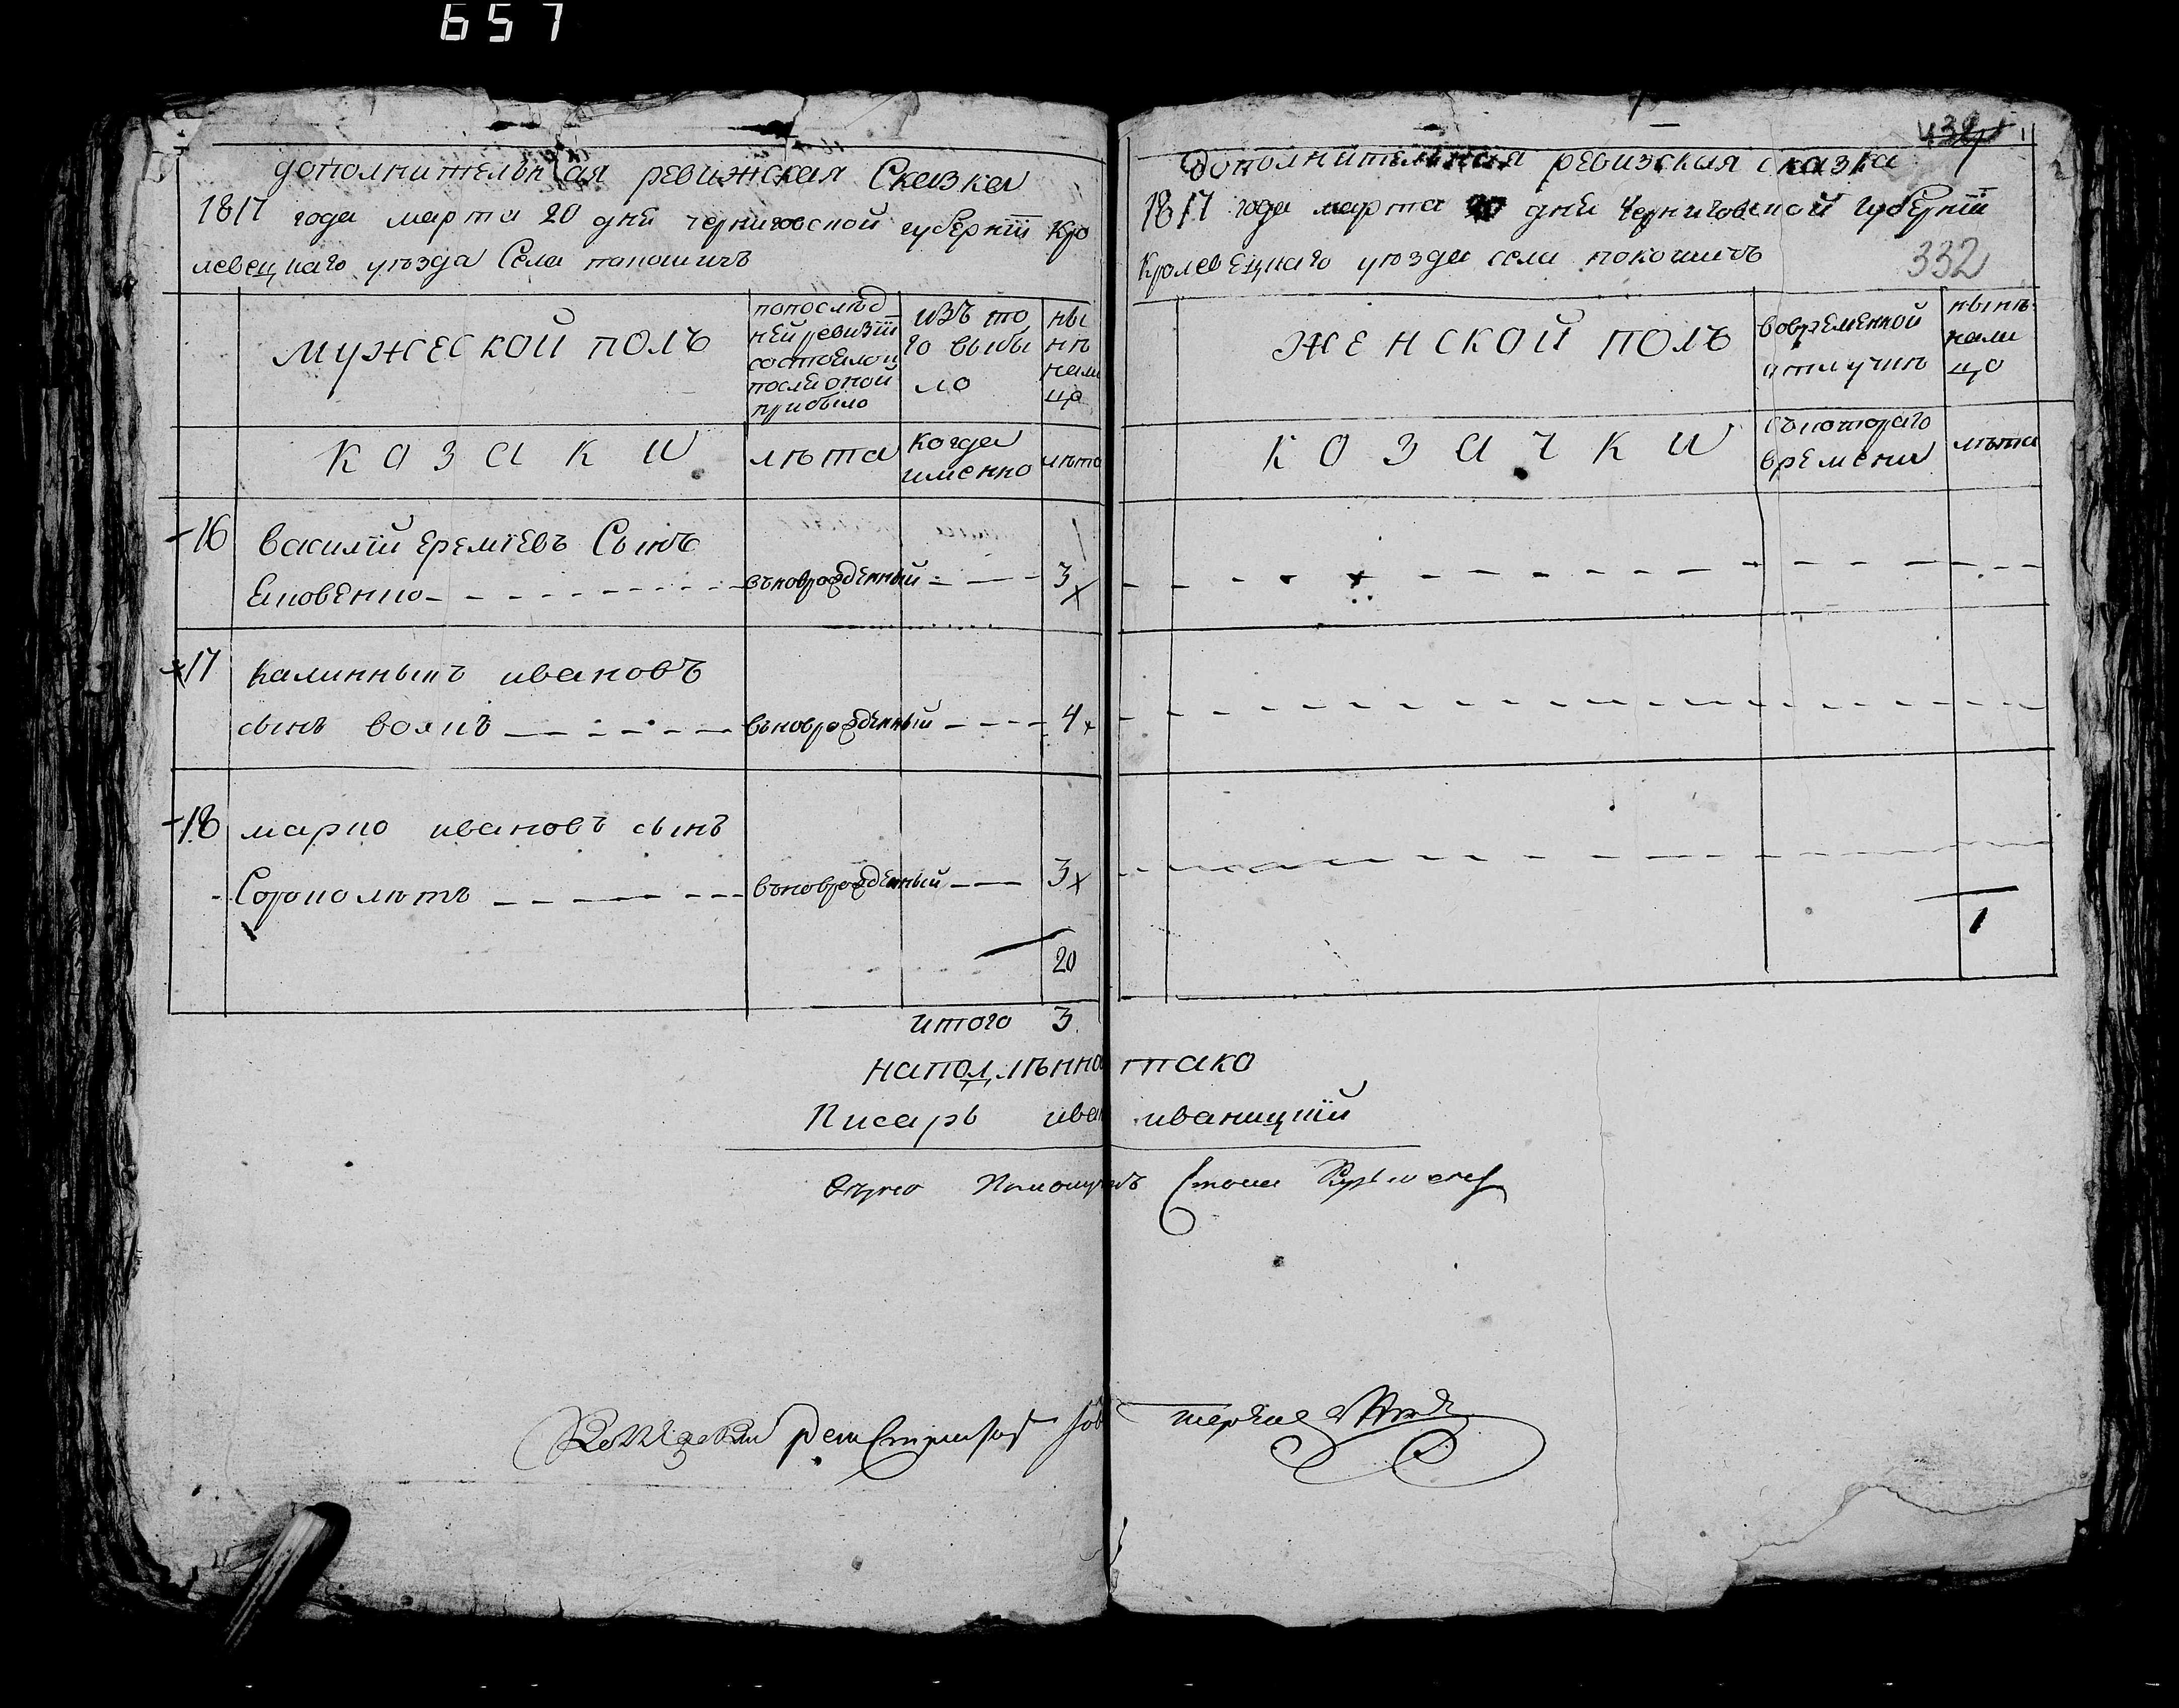 657
дополнительная ревижская Сказка
1817 года марта 20 дня черниговской губернїи Кро
левецкаго уезда Села покошичь
мужеской полъ
попослѣд
ней ревизїи
состояло и
после оной
прибыло
изъ то
го выбы
ло
ны
нѣ
нали
цо
козаки
лѣта
когда
именно
лѣта
16 василїй еремїевъ Сынъ
Яковенко вновьрожденный 3
17 калинникъ ивановъ
сынъ волкъ вновьрожденный 4
18 марко ивановъ сынъ
Сороколѣтъ вновьрожденный 3
20
итого 3
439
дополнительная ревизская сказка
1817 года марта 20 дня Черниговской губернїи
Кролевецкаго уезда села покошичь
332
женской полъ
вовременной
отлучкѣ
нынѣ
нали
цо
козачки
съкотораго
времени
лѣта
1
тако
Писарь иван иваницкїй